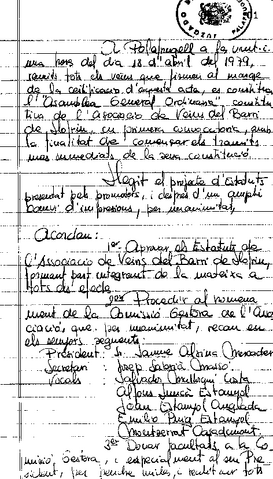 A Palafrugell a les vint-i-
una hores del dia 18 d'abril del 1979,
reunits tots els veïns que firmen al marge
de la certificació d'aquesta acta, es constitueix
l'"Asamblea General Ordinaria" constitu-
tiva de l'Associació de Veïns del Barri
de en primera convocatoria, amb
la finalitat de començar els tramits
mes inmediats de la seva constitució.
Llegit el projecte d'Estatuts
presentat pels promotors, i després d'un ampli
canvi d'impresions, per unanimitat,
Acordan:
1er Aprovar els Estatuts de
l'Associació de Veïns del Barri de
formant part integrant de la mateixa a
tots els efectes.
2on Procedir al nomena
ment de la Comissió Gestora de l'Aso
ciació que, per unanimitat, recau en
els senyors següents:
President: Sr. Jaume Mercader
Secretari: Josep Sabrià
Vocals: Salvador Costa
Alfons Juncà Estanyol
Joan Estanyol Anglada
Emilio Puig Estanyol
Montserrat Casademont
3er Donar facultats a la Co
missió Gestora, i especialment al seu Pre
sident, per i realitzar tots